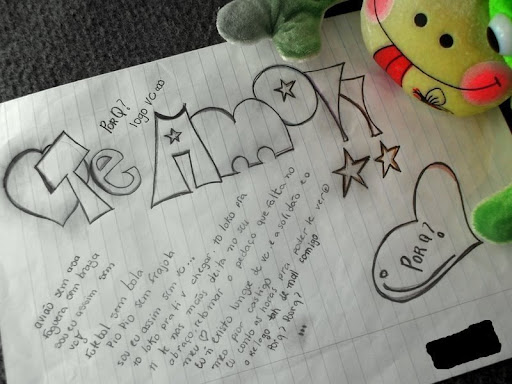 PorQ?
logo vc ∞
Te Amo
aviao sem asa
fogueira sem braza
sou eu assim sem
vc
futebol sem bola
Piu Piu sem frajola
sou eu assim sem vc...
to loko pra ti v chegar to loko pra
ti te nas mãos deita no seu
abraço retomar o pedaço que falta no
meu ♡
eu ñ existo longe de vc e a solidão é o
meu pior castigo
eu conto as horas pra poder te ver
o relogio tah de mal comigo
PorQ? PorQ?
...
PorQ?